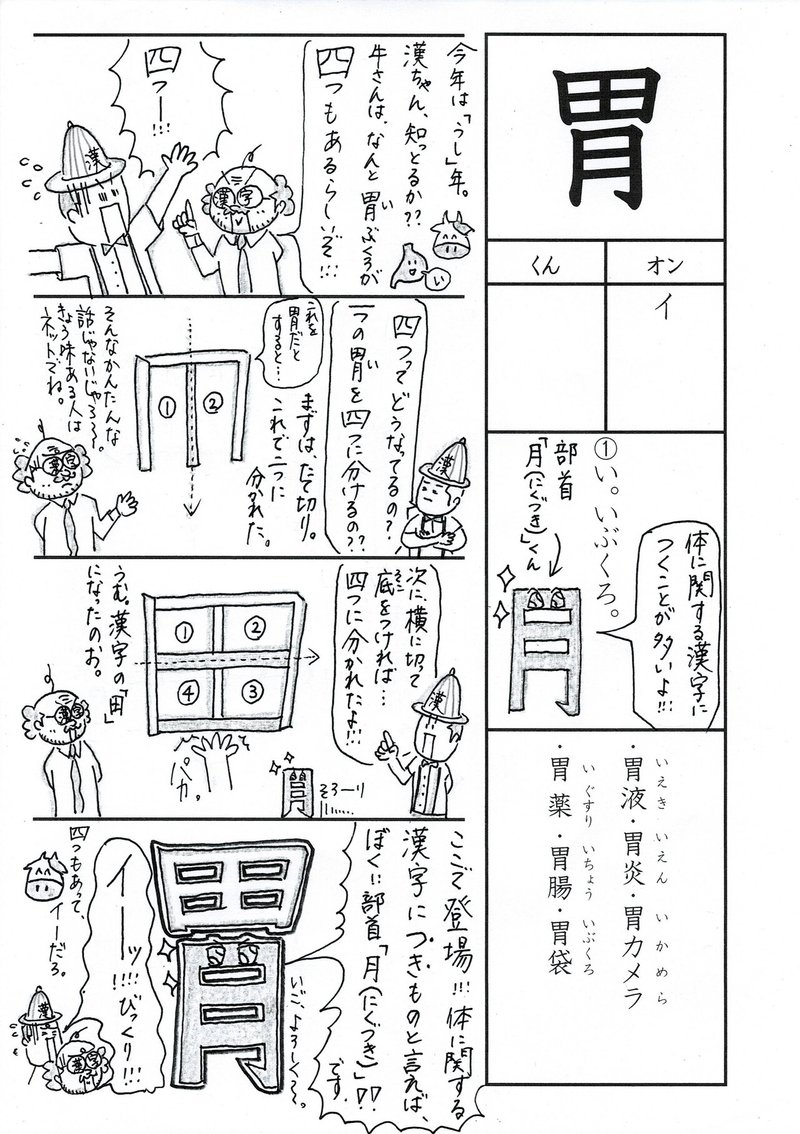 胃
オン
くん
イ
①い。いぶくろ。
部首
「月(にくづき)」くん
体に関する漢字に
つくことが多いよ!!!
・胃液・胃炎・胃カメラ
いえき いえん いかめら
・胃薬・胃腸・胃袋
いぐすり いちょう いぶくろ
今年は「うし」年。
漢ちゃん、知っとるか??
牛さんは、なんと胃ぶくろが
い
四つもあるらしいぞ!!!
い
漢字
四つー!!!
漢
四つってどうなってるの?
一つの胃を四つに分けるの??
い
漢
これを
胃だと
すると…
まずは、たて切り。
これで二つに
分かれた。
① ②
そんなかんたんな
話じゃないじゃろ〜。
きょう味ある人は
ネットでね。
漢字
次に、横に切って
底をつければ…
そこ
四つに分かれたよ!!!
漢
① ②
④ ③
パカ。
そろーり
うむ。漢字の「田」
になったのお。
漢字
ここで登場!!!体に関する
漢字につきものと言えば、
ぼく!!部首「月(にくづき)」!?
です。
いご、よろしく〜。
胃
イーッ!!!!びっくり!!!
四つもあって、
イーだろ。
漢
漢字